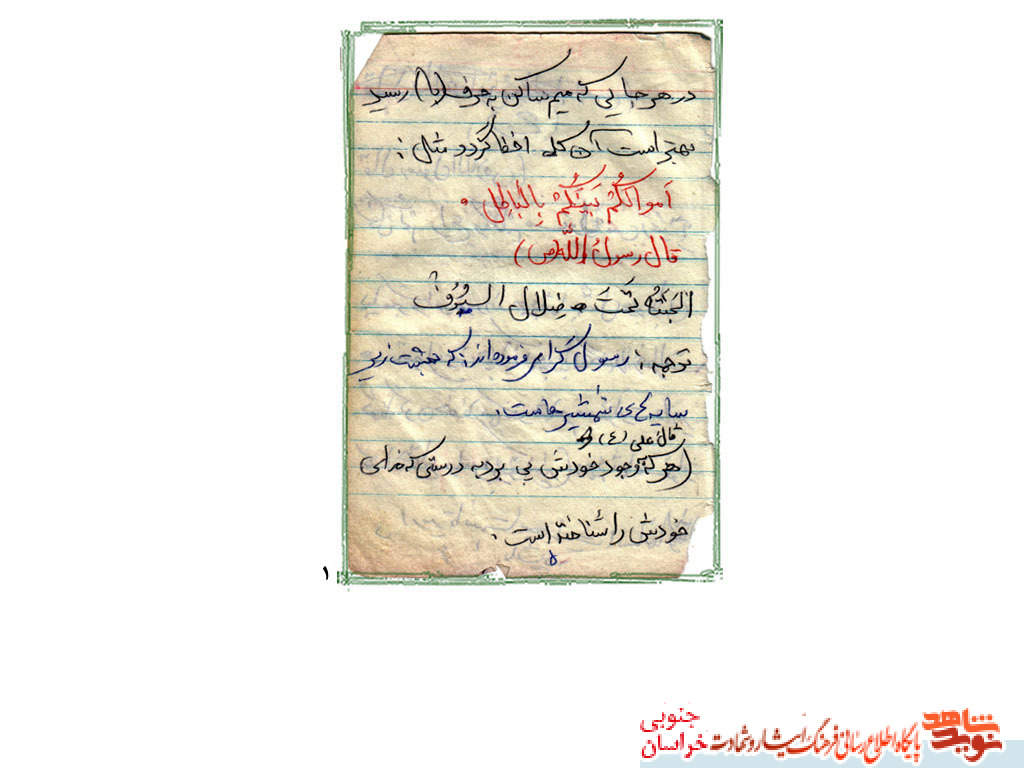 در هر جایی که میم ساکن به حرف (با) رسید
بهتر است آن کلمه اخفا گردد مثل :
اَموالکُمْ بَینَکُمْ بِالباطِل .
قال رسولُ اللّه (ص)
الجَنَّةُ تَحتَ ظِلال السُیُوفْ
توجه : رسول گرامی فرموده اند که بهشت زیر
سایه های شمشیرهاست .
قال علی (ع)
(هر که بوجود خودش پی برد به درستی که خدای
خودش را شناخته است .
۵
۱
نوید شاهد
پایگاه اطلاع رسانی فرهنگ ایثار و شهادت
جنوبی
خراسان